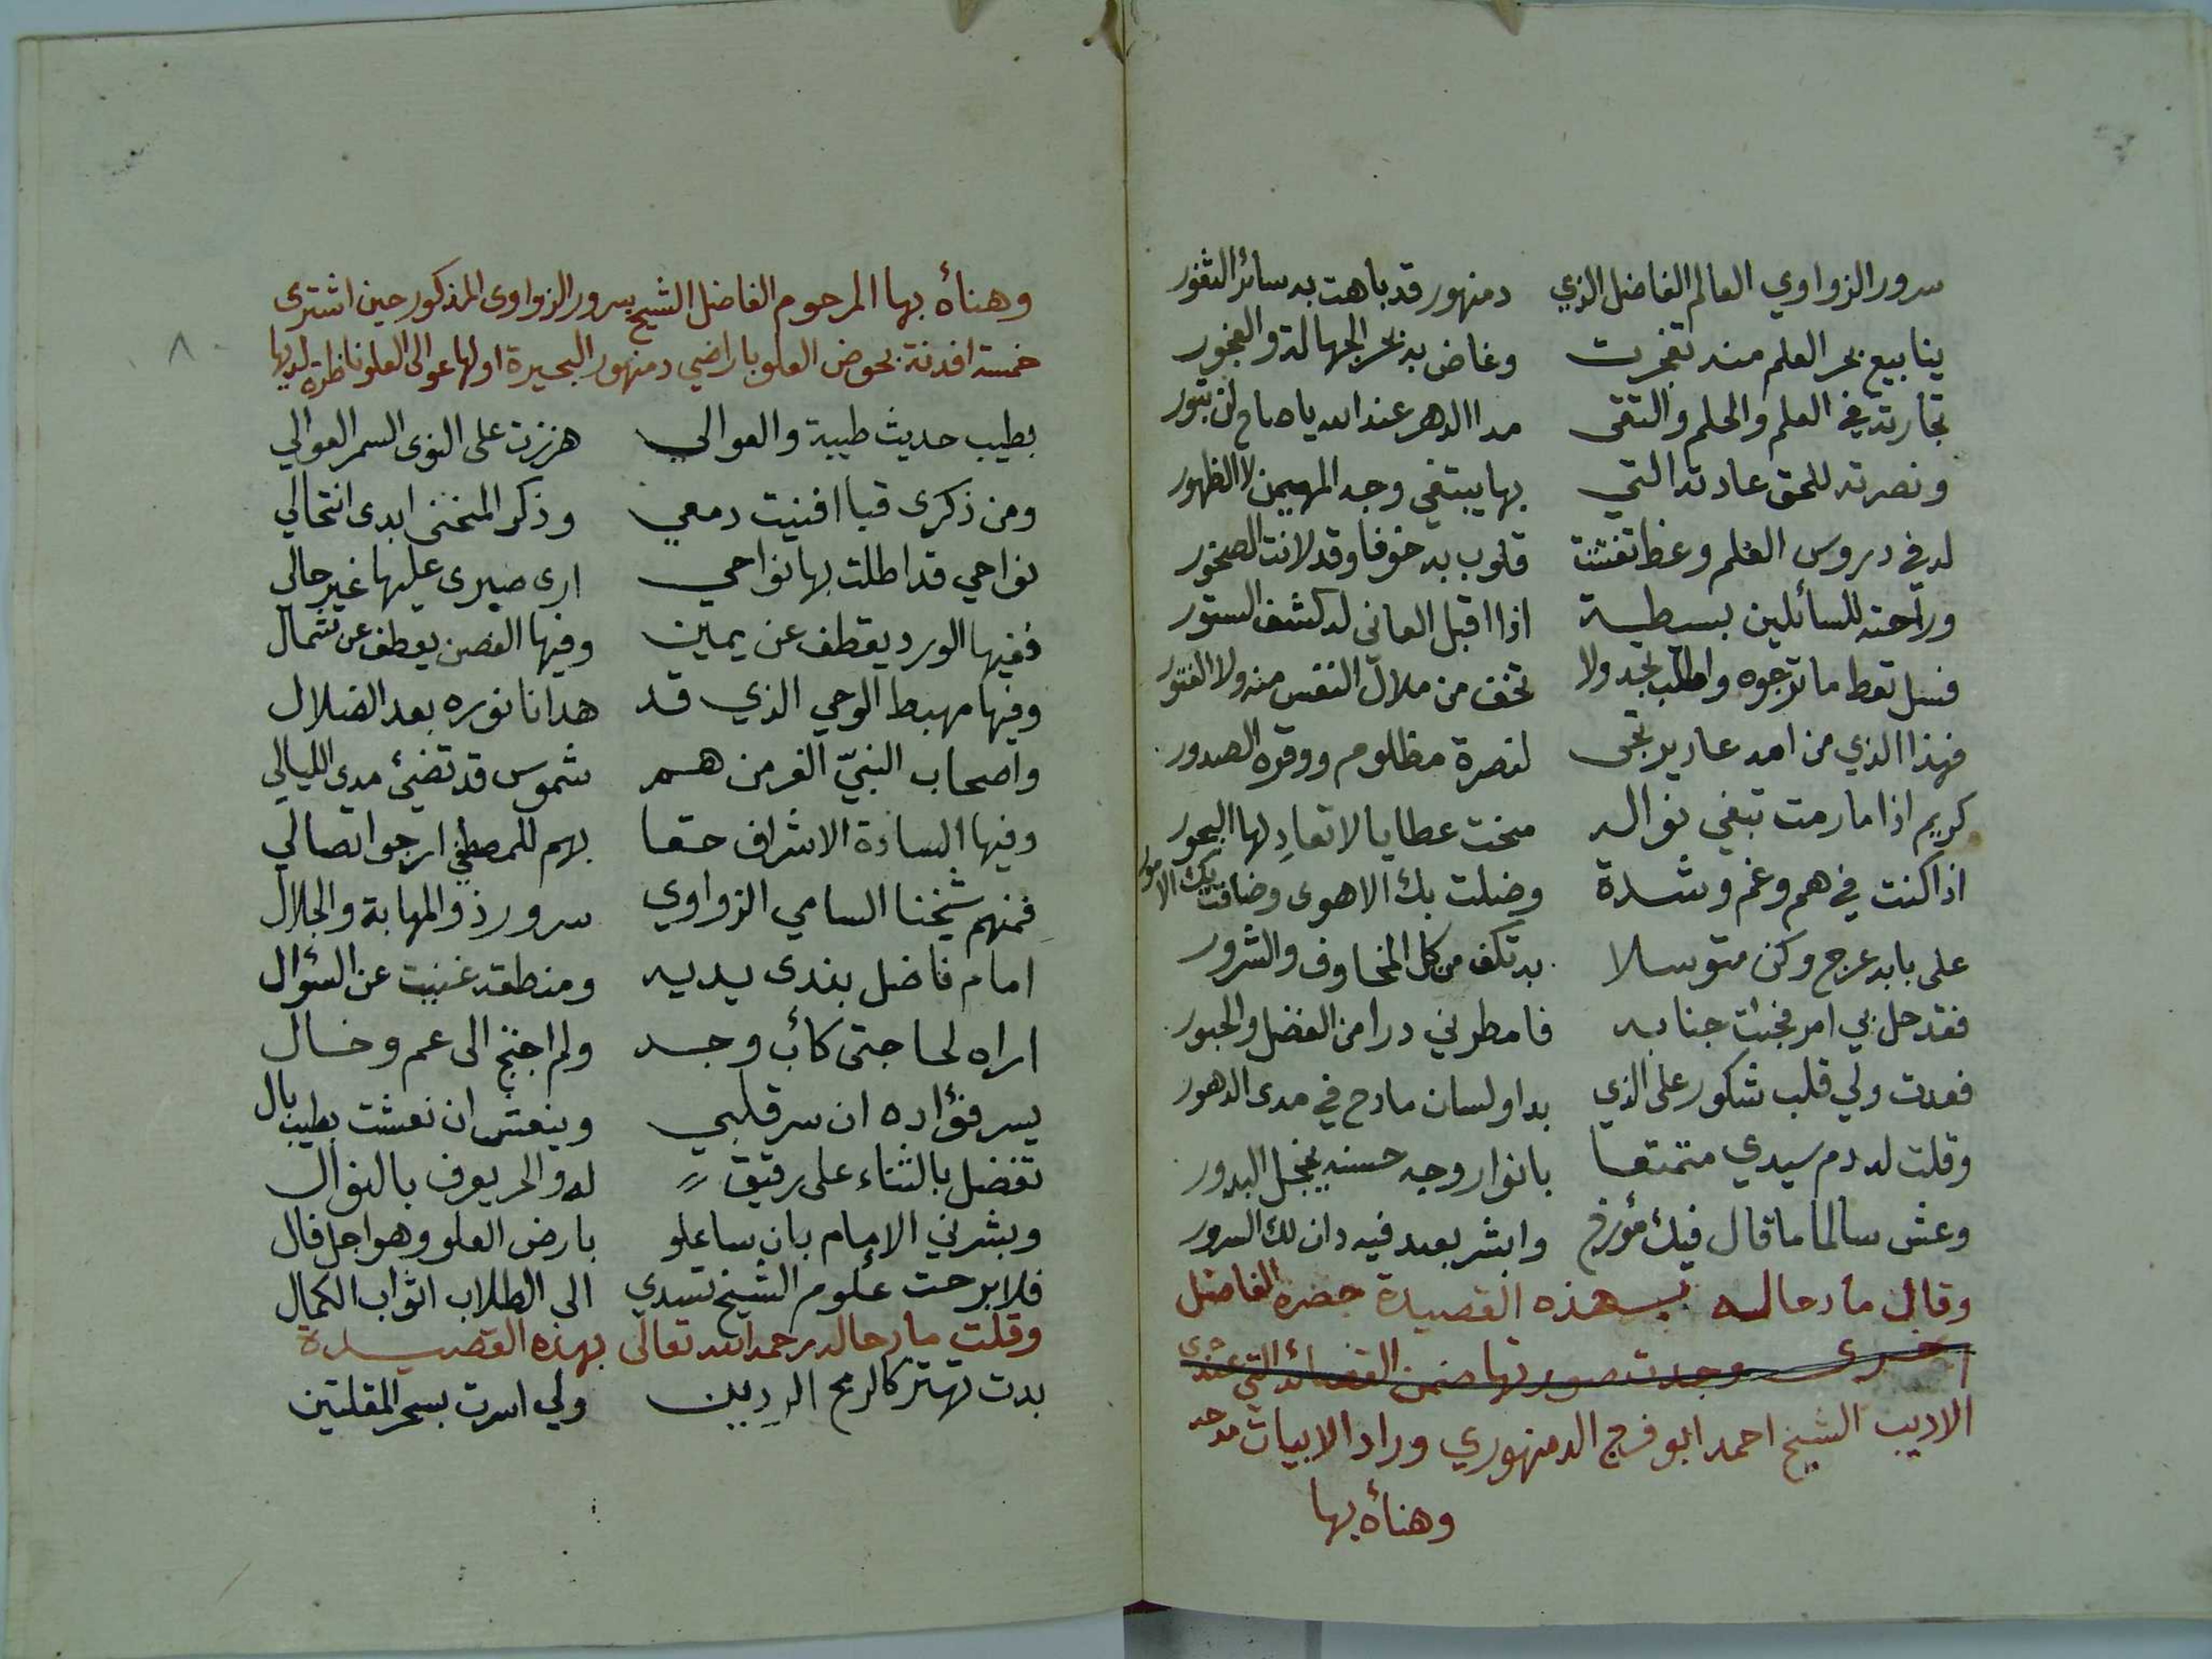 سرور الزواوي العالم الفاضل الذي دمنهور قد باهت به سائر الثغور
ينابيع بحر العلم منه تفجرت وغاض به بحر الجهالة والفجور
تجارته في العلم والحلم والتقى مدا الدهر عند الله يا صاح لن تبور
ونصرته للحق عادته التي بها يبتغي وجه المهيمن لا الظهور
له في دروس العلم وعظ تفتتت قلوب به خوفا وقد لانت الصخور
وراحته للسائلين بسيطة اذا اقبل العانى له كشف الستور
فسل تعط ما ترجوه واطلب تجد ولا تخف من ملال النفس منه ولا الفتور
فهذا الذي من امه عاد يرتجى لنصرة مظلوم ووقره الصدور
كريم اذا ما رمت تبغي نواله منحت عطايا لا تعادلها البحور
اذا كنت في هم وغم وشدة وضلت بك الاهوى وضاقت بك الامور
على بابه عرج وكن متوسلا به تكف من كل المخاوف والشرور
فقد حل بي امر فجئت جنابه فامطرني درا من الفضل والحبور
فعدت ولي قلب شكور على الذي بدا ولسان مادح في مدى الدهور
وقلت له دم سيدي متمتعا بانوار وجه حسنه يخجل البدور
وعش سالما ما قال فيك مؤرخ وابشر بعد فيه دان لك السرور
وقال مادحا له بهذه القصيدة حضرة الفاضل
اخرى وجدت صورتها ضمن القصائد التي عندى
الاديب الشيخ احمد ابو فرج الدمنهوري وراد الابيات مدحه
وهنأه بها
وهنأه بها المرحوم الفاضل الشيخ سرور الزواوى المذكور حين اشترى
خمسة افدنة بحوض العلو باراضي دمنهور البحيرة اولها عوالى العلو ناظرة لديها
٨
بطيب حديث طيبة والعوالي هززت على النوى السمر العوالي
ومن ذكرى قبا افنيت دمعي وذكر المنحنى ابدى انتحالي
نواحي قد اطلت بها نواحي ارى صبرى عليها غير حالي
ففيها الورد يقطف عن يمين وفيها الغصن يعطف عن شمال
وفيها مهبط الوحي الذي قد هدانا نوره بعد الضلال
واصحاب النبيّ الغر من هم شموس قد تضئ مدى الليالي
وفيها السادة الاشراف حقا بهم للمصطفى ارجو اتصالي
فمنهم شيخنا السامي الزواوي سرور ذو المهابة والجلال
امام فاضل بندى يديه ومنطقه غنيت عن السؤال
اراه لحاجتى كأب وجد ولم اجنح الى عم وخال
يسر فؤاده ان سر قلبي وينعش ان نعشت بطيب بال
تفضل بالثناء على رقيق له والحر يعرف بالنوال
وبشرني الامام بان ساعلو بارض العلو وهو اجل فال
فلا برحت علوم الشيخ تسدي الى الطلاب اثواب الكمال
وقلت مادحا له رحمه الله تعالى بهذه القصيدة
بدت تهتز كالرمح الرديين ولي اسرت بسحر المقلتين